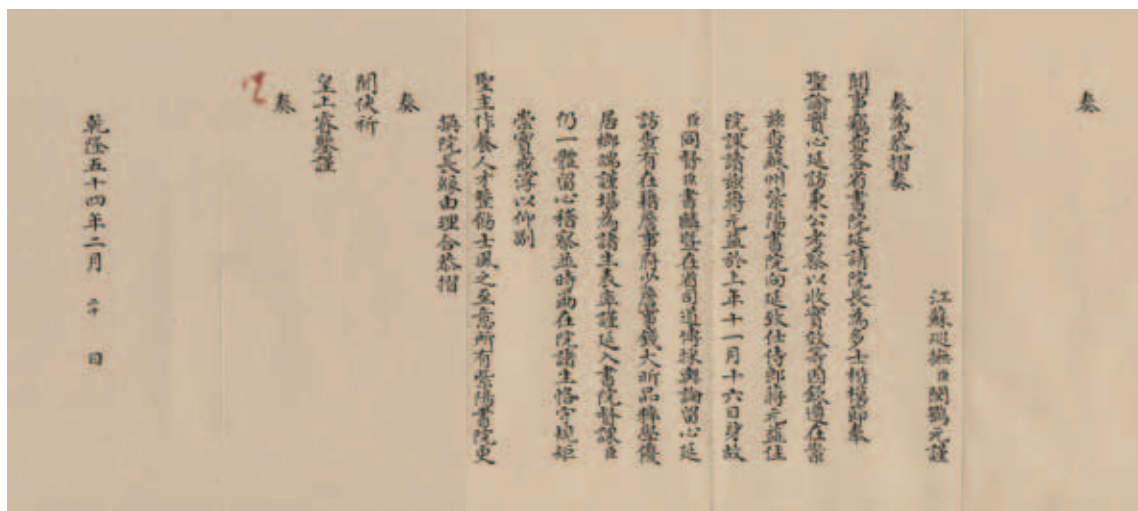 奏
江蘇巡撫臣閔鶚元謹
奏為恭摺奏
聞事竊查各省書院延請院長為多士楷模節奉
聖諭實心延訪秉公考察以收實效等因欽遵在案
茲查蘇州紫陽書院向延致仕侍郎蔣元益住
院課讀詎蔣元益於上年十一月十六日身故
臣同督臣書麟暨在省司道博採輿論留心延
訪查有在籍詹事府少詹事錢大昕品粹學優
居鄉端謹堪為諸生表率謹延入書院督課臣
仍一體留心稽察並時飭在院諸生恪守規矩
崇實黜浮以仰副
聖主作養人才整飭士風之至意所有紫陽書院更
換院長緣由理合恭摺
奏
聞伏祈
皇上睿鑒謹
奏
乾隆五十四年二月 二十 日